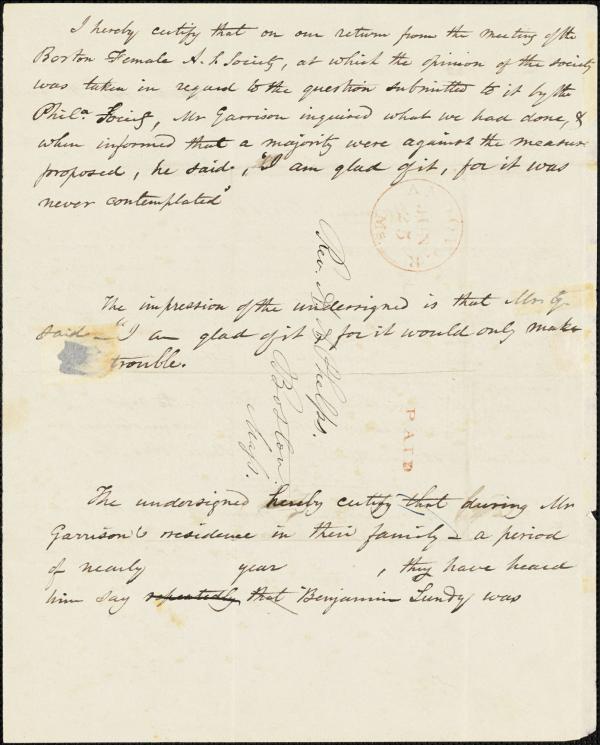 I hereby certify that on our return from the meeting of the
Boston Female A. S. Society, at which the opinion of the society
was taken in regard to the question submitted to it by the
Phila. Society, Mr Garrison inquired what we had done, &
when informed that a majority were against the measure
proposed, he said, "I am glad of it, for it was
never contemplated"
JUN
25
MS.
Rev. A. A. Phelps.
Boston.
Mass.
The impression of the undersigned is that Mr G.
said — "I am glad of it, for it would only make
trouble.
PAID
The undersigned hereby certify that during Mr
Garrison's residence in their family — a period
of nearly year , they have heard
him say repeatedly that Benjamin Lundy was